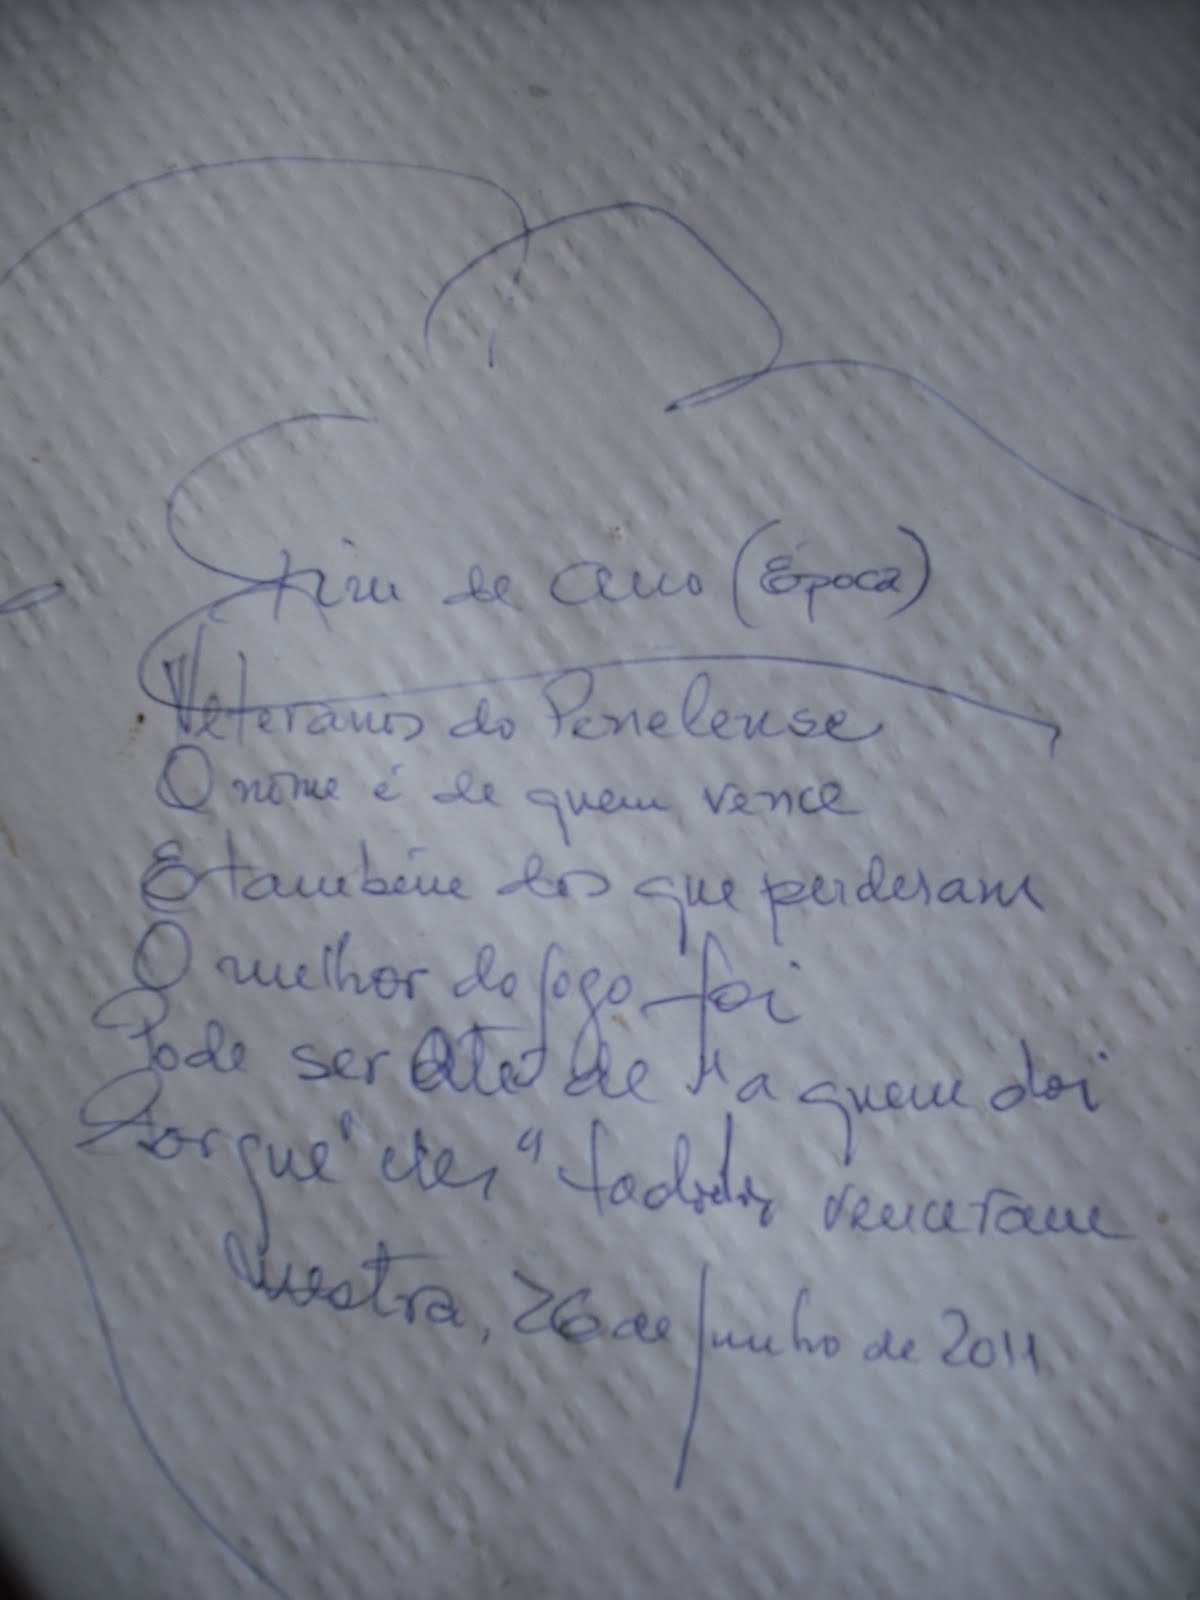 Fim de ano (Época)
Veteranos do Penelense
O nome é de quem vence
E também dos que perderam
O melhor do jogo foi
Pode ser até de "a quem doi
Porque" eles "todos venceram
26 de Junho de 2011